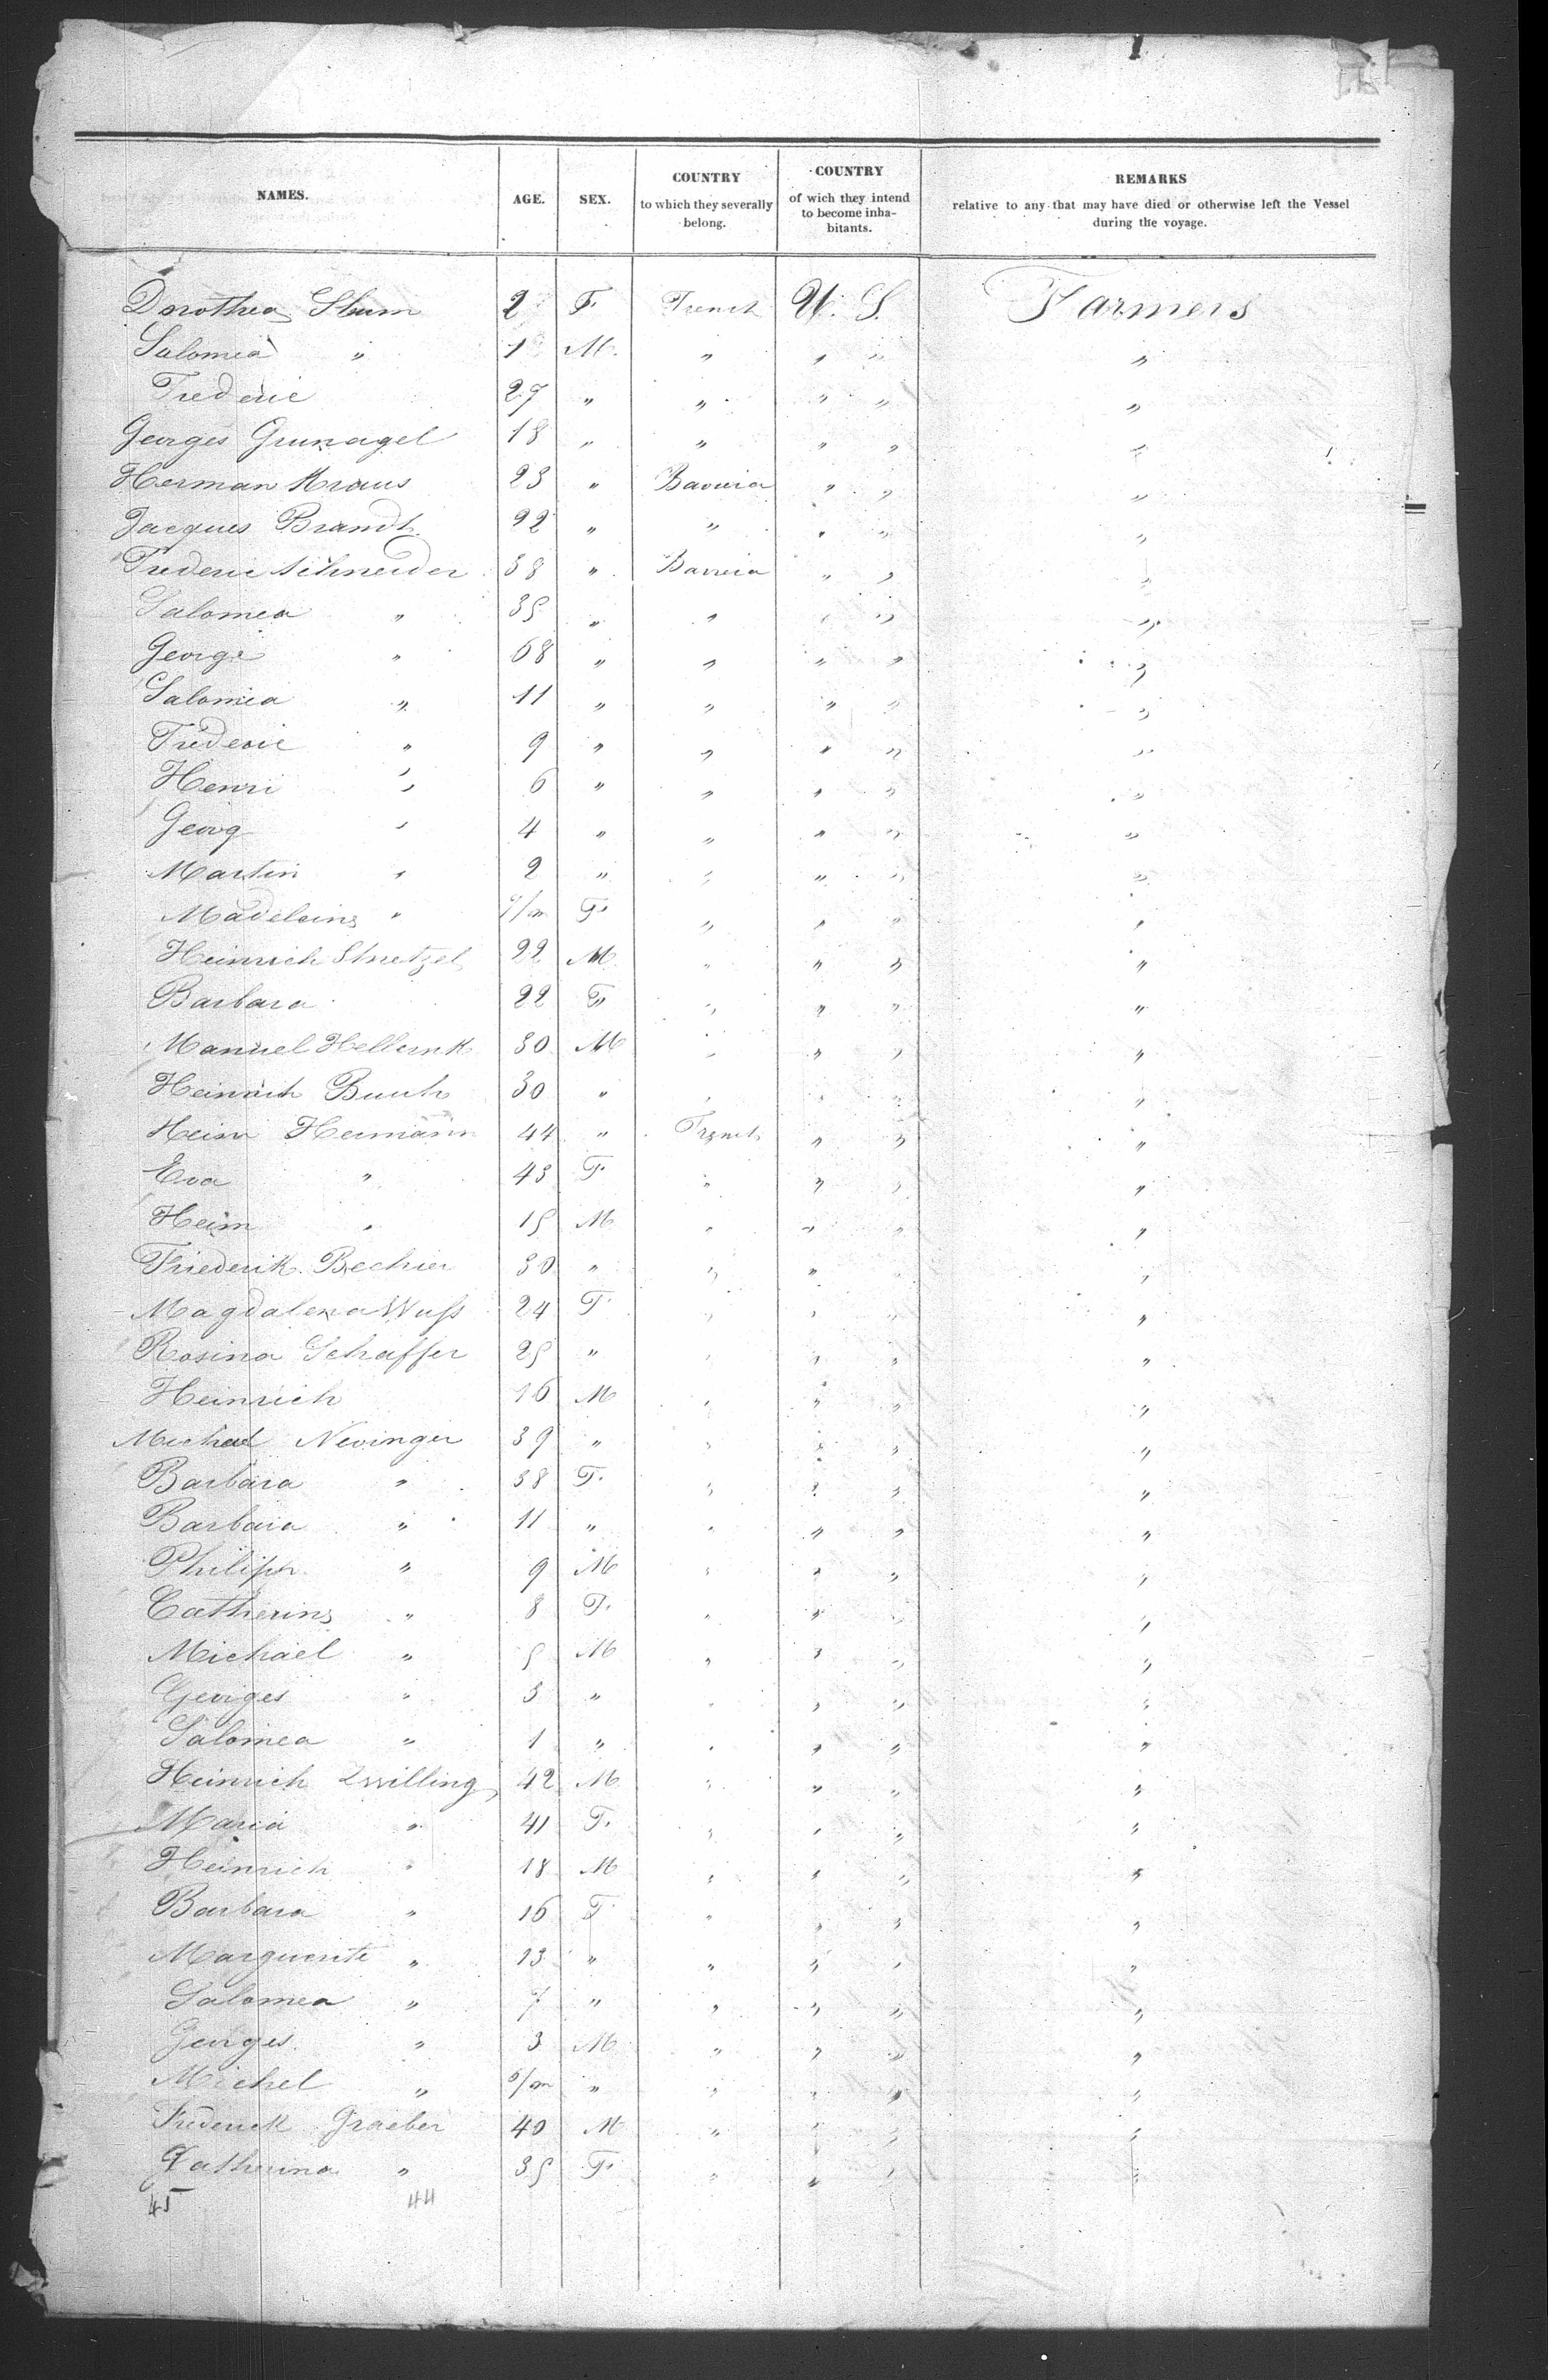 NAMES. AGE. SEX. COUNTRY to which they severally belong. COUNTRY of wich they intend to become inhabitants. REMARKS relative to any that may have died or otherwise left the Vessel during the voyage.
Dorothea 2 F. French U. S. Farmers
Salomea " 1 M. " " " "
Frederic 27 " " " " "
Georges Grunagel 18 " " " " "
Herman Kraus 23 " Bavieria " " "
Jacques Brandt 22 " " " " "
Frederic Schneider 38 " Bavieria " " "
Salomea " 35 " " " " "
George " 68 " " " " "
Salomea " 11 " " " " "
Frederic " 9 " " " " "
Henri " 6 " " " " "
Georg " 4 " " " " "
Martin " 2 " " " " "
Madeleine " /m F. " " " "
Heinrich 22 M. " " " "
Barbara 22 F. " " " "
Manuel 30 M " " " "
Heinrich 30 " " " " "
Heinr Hermann 44 " French " " "
Eva " 43 F. " " " "
Heinr " 15 M " " " "
Friederik Bechier 30 " " " " "
Magdalena Wuss 24 F. " " " "
Rosina Schaffer 25 " " " " "
Heinrich 16 M " " " "
Michael Nevinger 39 " " " " "
Barbara " 38 F. " " " "
Barbara " 11 " " " " "
Philipp " 9 M " " " "
Catherine " 8 F. " " " "
Michael " 5 M " " " "
Georges " 3 " " " " "
Salomea " 1 " " " " "
Heinrich Zwilling 42 M. " " " "
Maria " 41 F. " " " "
Heinrich " 18 M " " " "
Barbara " 16 F. " " " "
Marguerite " 13 " " " " "
Salomea " 7 " " " " "
Georges " 3 M " " " "
Michel " /m " " " " "
Frederick Graeber 40 M " " " "
Catherina " 35 F. " " " "
45 44